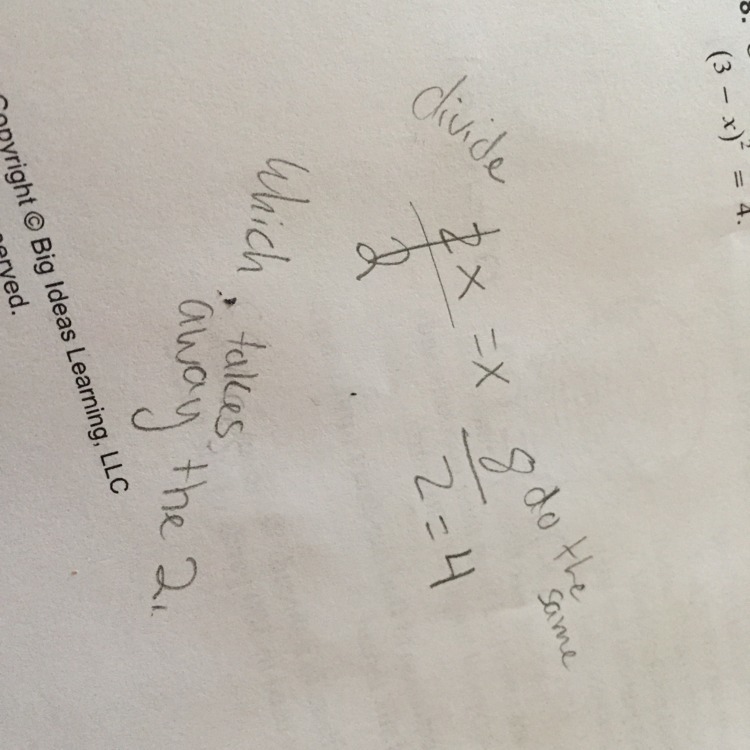 8.
(3 − x)² = 4.
do the
same
divide 2x = x 8
2 2 = 4
Which takes
away the 2.
Copyright © Big Ideas Learning, LLC